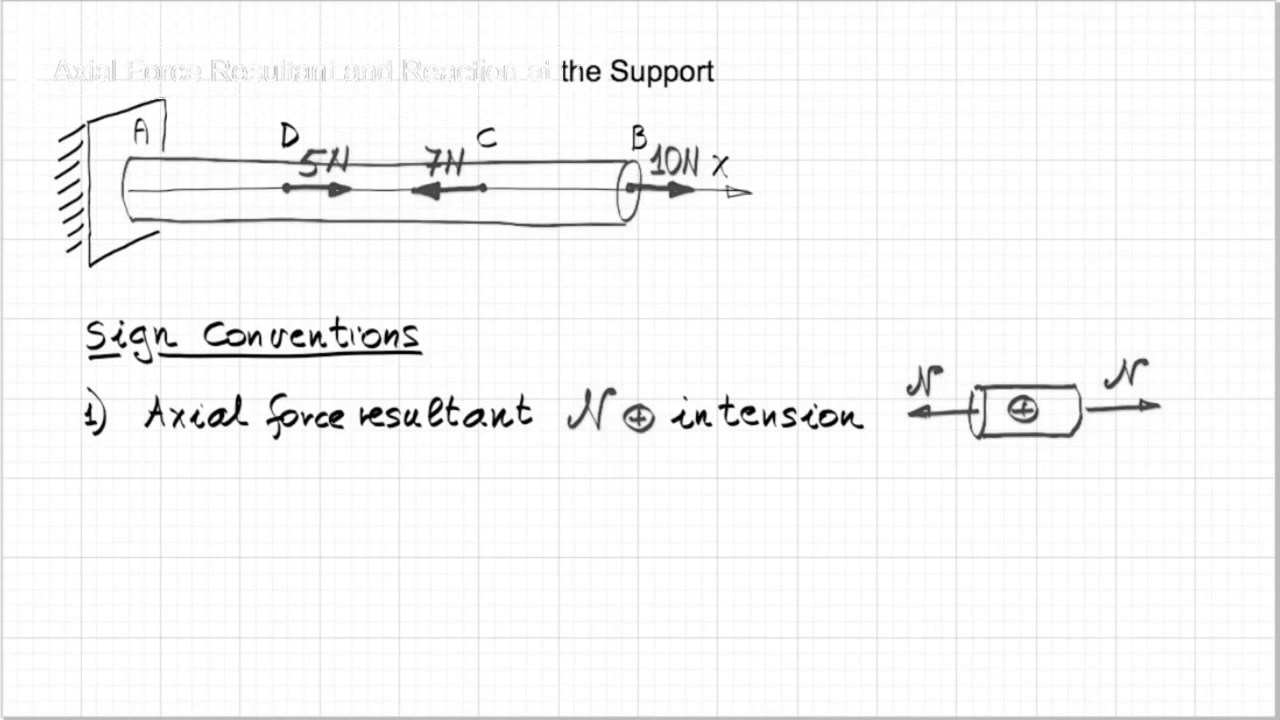 Axial Force Resultant and Reaction at the Support
A D C B
5N 7N 10N x
Sign Conventions
1) Axial force resultant N ⊕ in tension N ⊕ N